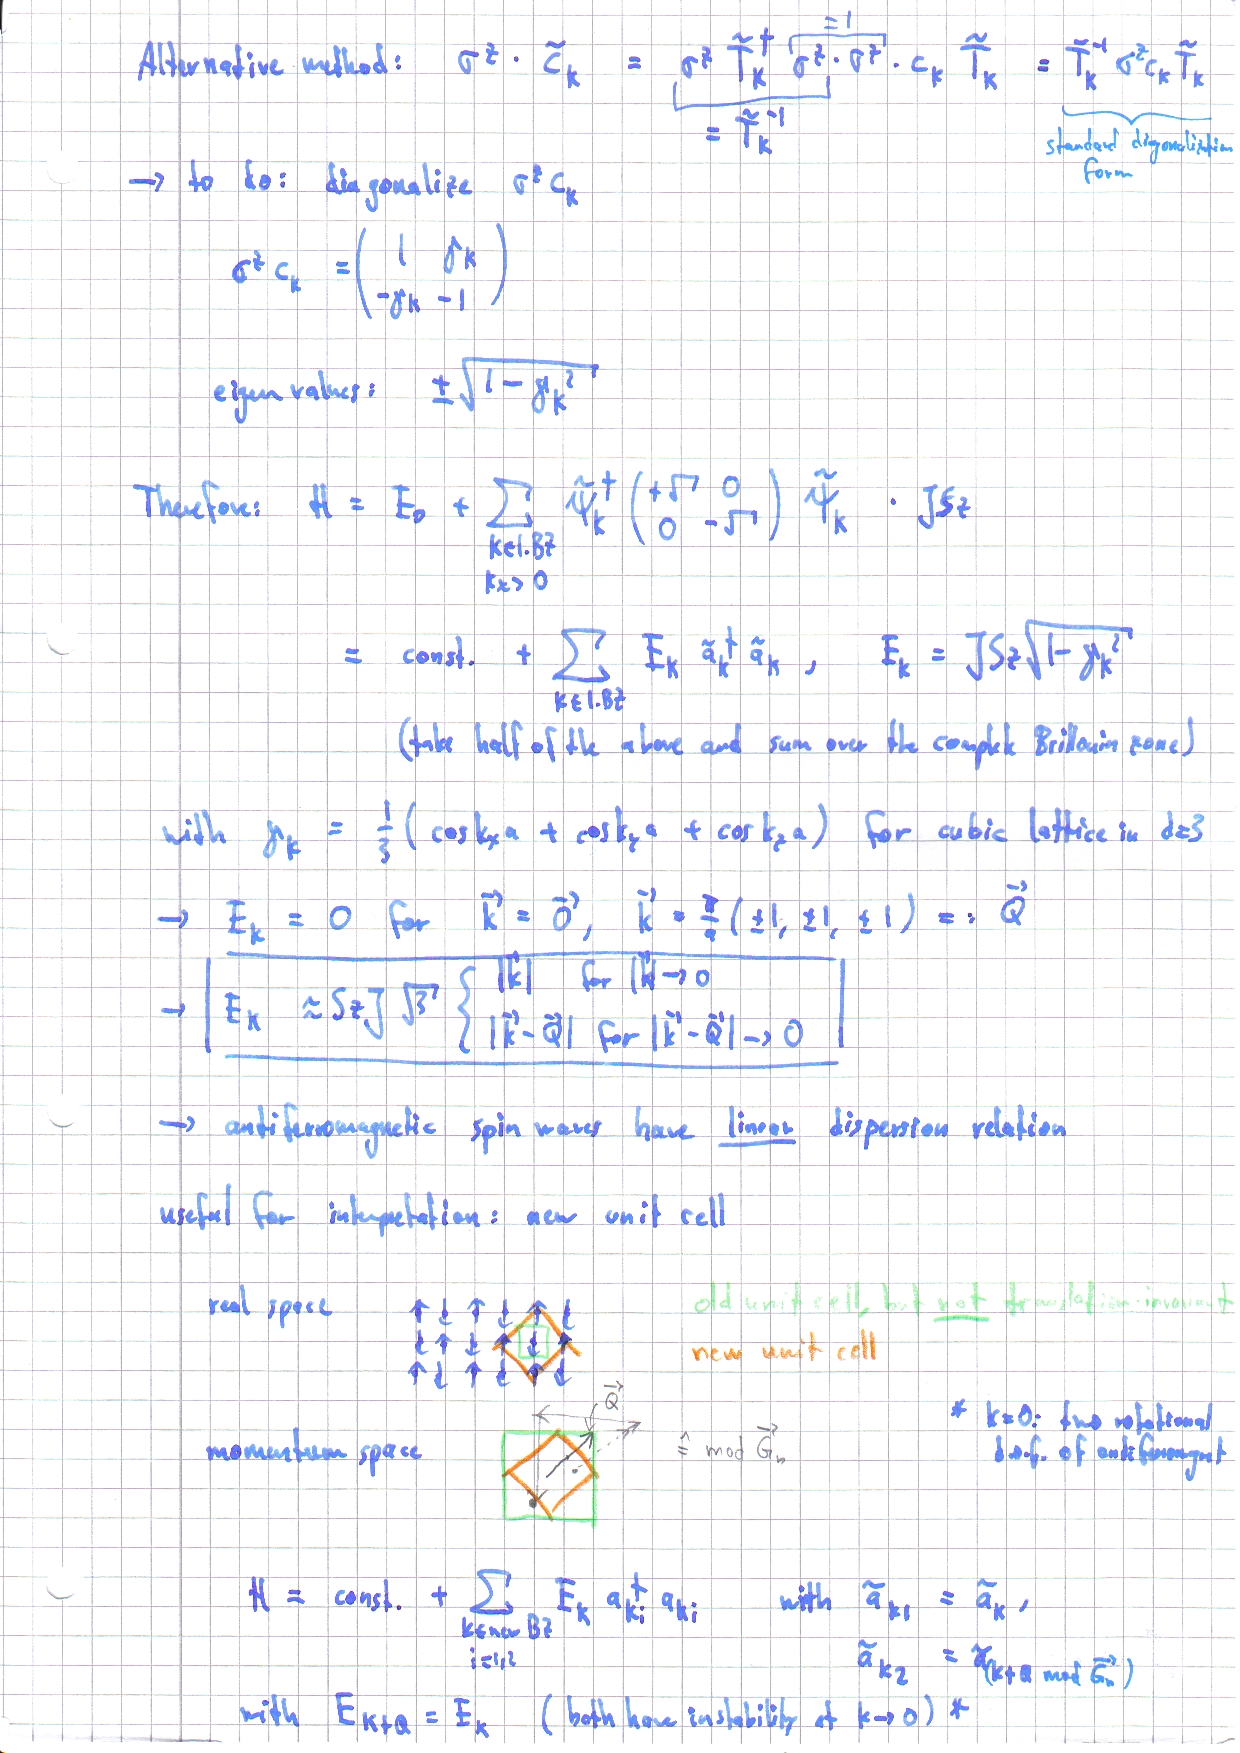 Alternative method: σᶻ · c̃ₖ = σᶻ T̃ₖ† σᶻ · σᶻ · cₖ T̃ₖ = T̃ₖ⁻¹ σᶻ cₖ T̃ₖ
= 1
= T̃ₖ⁻¹
standard digonalization form
→ to do: diagonalize σᶻ cₖ
σᶻ cₖ = ( 1 γk
-γk -1 )
eigenvalues: ± √(1 - γₖ²)
Therefore: H = E₀ + ∑ ψ̃ₖ† ( +√ 0
0 -√ ) ψ̃ₖ · JSz
k∈1.BZ
kx > 0
= const. + ∑ Eₖ ãₖ† ãₖ , Eₖ = JSz √(1 - γₖ²)
k∈1.BZ
(take half of the above and sum over the complete Brillouin zone)
with γₖ = 1/3 ( cos kₓa + cos k_y a + cos k_z a ) for cubic lattice in d=3
→ Eₖ = 0 for k⃗ = 0⃗, k⃗ = π/a ( ±1, ±1, ±1 ) =: Q⃗
→ Eₖ ≈ SzJ √3 { |k⃗| for |k⃗| → 0
|k⃗ - Q⃗| for |k⃗ - Q⃗| → 0
→ antiferromagnetic spin waves have linear dispersion relation
useful for interpretation: new unit cell
real space
↑ ↓ ↑ ↓ ↑ ↓
↓ ↑ ↓ ↑ ↓ ↑
↑ ↓ ↑ ↓ ↑ ↓
old unit cell, but not translation-invariant
new unit cell
Q⃗
momentum space
≙ mod G⃗ₙ
* k=0: two rotational
d.o.f. of antiferromagnet
H = const. + ∑ Eₖ aₖᵢ† aₖᵢ with ãₖ₁ = ãₖ ,
k∈new BZ
i=1,2
ãₖ₂ = ã(k+Q mod G⃗ₙ)
with E_{K+Q} = Eₖ ( both have instability at k → 0 ) *